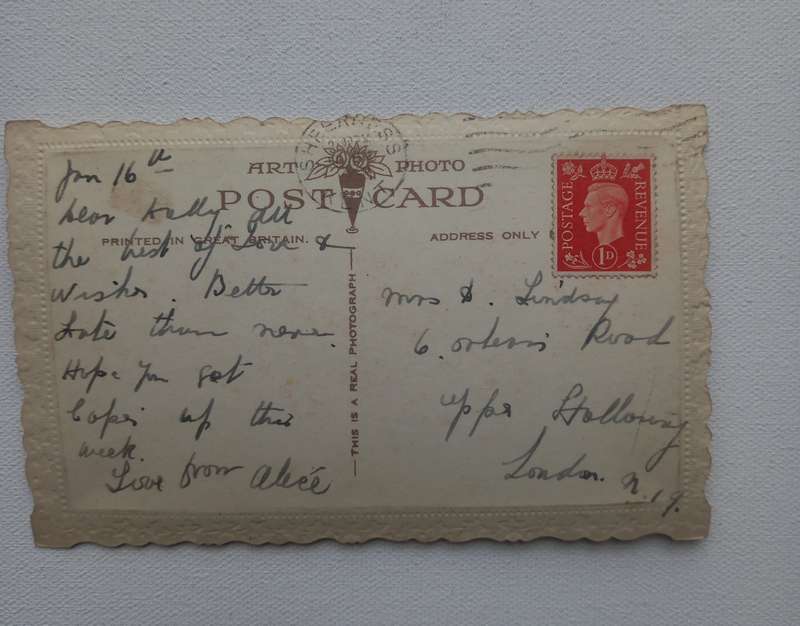 SHEERNESS
ART PHOTO
POST CARD
PRINTED IN GREAT BRITAIN.
ADDRESS ONLY
THIS IS A REAL PHOTOGRAPH
POSTAGE
REVENUE
1D
Jan 16th
Dear Dolly All
the best of Love &
Wishes. Better
Late than never.
Hope you got
Copes up this
week.
Love from Alice
Mrs D. Lindsay
6. Orleans Road
Upper Holloway
London. N.19.